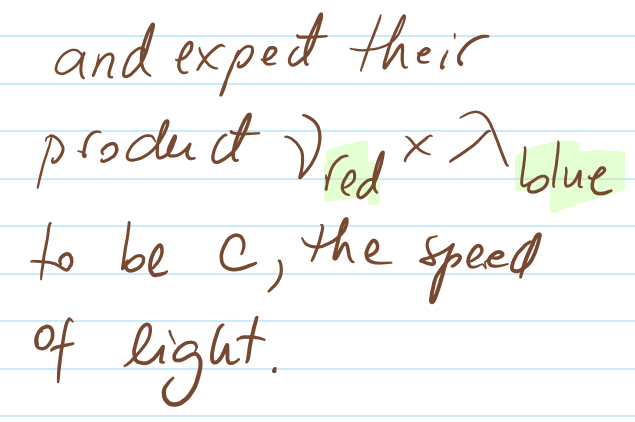 and expect their
product ν_red × λ_blue
to be c, the speed
of light.